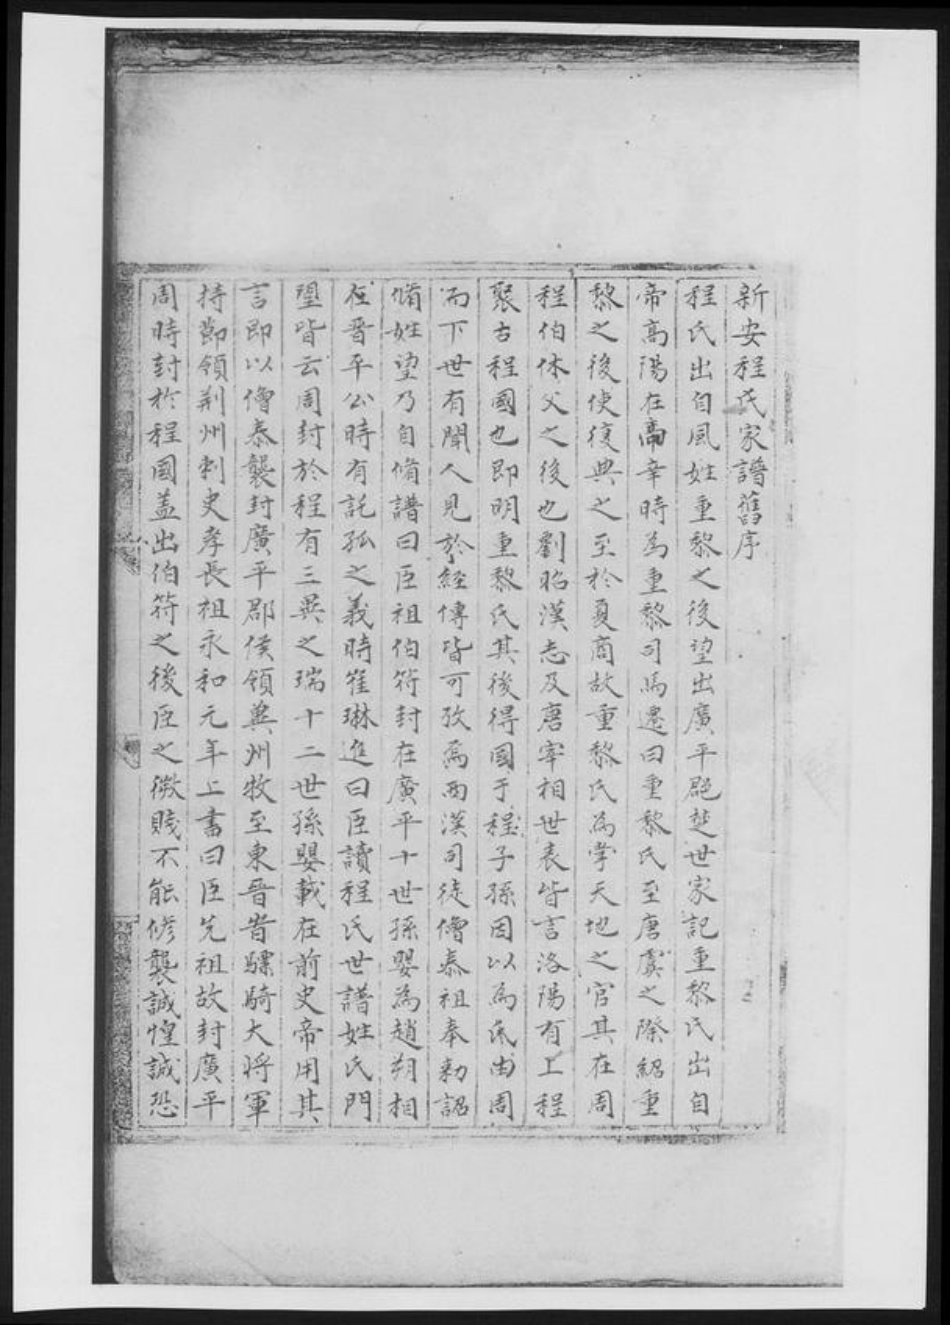 新安程氏家譜舊序
程氏出自風姓重黎之後望出廣平郡楚世家記重黎氏出自
帝高陽在高辛時為重黎司馬遷曰重黎氏至唐虞之際紹重
黎之後使復典之至於夏商故重黎氏為掌天地之官其在周
程伯休父之後也劉昭漢志及唐宰相世表皆言洛陽有上程
聚古程國也即明重黎氏其後得國于程子孫因以為氏由周
而下世有聞人見於經傳皆可攷焉西漢司徒僧泰祖奉勅詔
脩姓望乃自脩譜曰臣祖伯符封在廣平十世孫嬰為趙朔相
在晋平公時有託孤之義時崔琳進曰臣讀程氏世譜姓氏門
望皆云周封於程有三異之瑞十二世孫嬰載在前史帝用其
言即以僧泰襲封廣平郡侯領兾州牧至東晋昔驃騎大將軍
持節領荆州刺史孝長祖永和元年上書曰臣先祖故封廣平
周時封於程國盖出伯符之後臣之微賤不能修襲誠惶誠恐